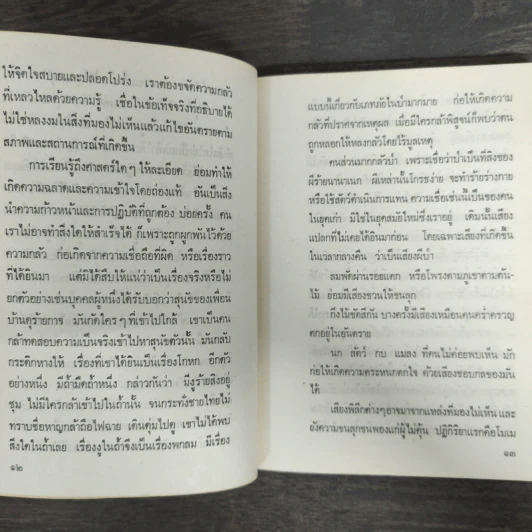 ให้จิตใจสบายและปลอดโปร่ง เราต้องขจัดความกลัว
ที่เหลวไหลด้วยความรู้ เชื่อในข้อเท็จจริงที่อธิบายได้
ไม่ใช่หลงงมในสิ่งที่มองไม่เห็นแล้วแก้ไขอันตรายตาม
สภาพและสถานการณ์ที่เกิดขึ้น
การเรียนรู้ถึงศาสตร์ใดๆ ให้ละเอียด ย่อมทำให้
เกิดความฉลาดและความเข้าใจโดยถ่องแท้ อันเป็นสิ่ง
นำความก้าวหน้าและการปฏิบัติที่ถูกต้อง บ่อยครั้ง คน
เราไม่อาจทำสิ่งใดให้สำเร็จได้ ก็เพราะถูกผูกพันไว้ด้วย
ความกลัว ก่อเกิดจากความเชื่อถือที่ผิด หรือเรื่องราว
ที่ได้ยินมา แต่มิได้สืบให้แน่ว่าเป็นเรื่องจริงหรือไม่
ยกตัวอย่างเช่นบุคคลผู้หนึ่งได้รับบอกว่าสุนัขของเพื่อน
บ้านดุร้ายกาจ มันกัดใครๆ ที่เข้าไปใกล้ เขาเป็นคน
กล้าทดสอบความเป็นจริงเข้าไปหาสุนัขตัวนั้น มันกลับ
กระดิกหางให้ เรื่องที่เขาได้ยินเป็นเรื่องโกหก อีกตัว
อย่างหนึ่ง มีถ้ำมืดถ้ำหนึ่ง กล่าวกันว่า มีงูร้ายสิงอยู่
ชุม ไม่มีใครกล้าเข้าไปในถ้ำนั้น จนกระทั่งชายไทยไม่
ทราบชื่อหาญกล้าถือไฟฉาย เดินดุ่มไปดู เขาไม่ได้พบ
สิ่งใดในถ้ำเลย เรื่องงูในถ้ำจึงเป็นเรื่องพกลม มีเรื่อง
๑๒
แบบนี้เกี่ยวกับเภทภัยในป่ามากมาย ก่อให้เกิดความ
กลัวที่ปราศจากเหตุผล เมื่อมีใครกล้าพิสูจน์ก็พบว่าคน
ถูกหลอกให้หลงกลัวโดยไร้มูลเหตุ
คนส่วนมากกลัวป่า เพราะเชื่อว่าป่าเป็นที่สิงของ
ผีร้ายนานาเนก ผีเหล่านั้นโกรธง่าย จะทำร้ายร่างกาย
หรือใช้สัตว์ดำเนินการแทน ความเชื่อเช่นนี้เป็นของคน
ในยุคเก่า มิใช่ในยุคสมัยใหม่ซึ่งเราอยู่ เดิมนั้นเสียง
แปลกที่ไม่เคยได้ยินมาก่อน โดยเฉพาะเสียงที่เกิดขึ้น
ในเวลากลางคืน ว่าเป็นเสียงผีป่า
ลมพัดผ่านรอยแตก หรือโพรงตามภูเขาตามต้น-
ไม้ ย่อมมีเสียงชวนให้ขนลุก
กิ่งไม้ขัดสีกัน บางครั้งมีเสียงเหมือนคนคร่ำครวญ
ตกอยู่ในอันตราย
นก สัตว์ กบ แมลง ที่คนไม่ค่อยพบเห็น มัก
ก่อให้เกิดความตระหนกตกใจ ด้วยเสียงชอบกลของมัน
ได้
เสียงพิลึกต่างๆอาจมาจากแหล่งที่มองไม่เห็น และ
ยังความขนลุกขนพองแก่ผู้ไม่คุ้น ปฏิกิริยาแรกคือโมเม
๑๓